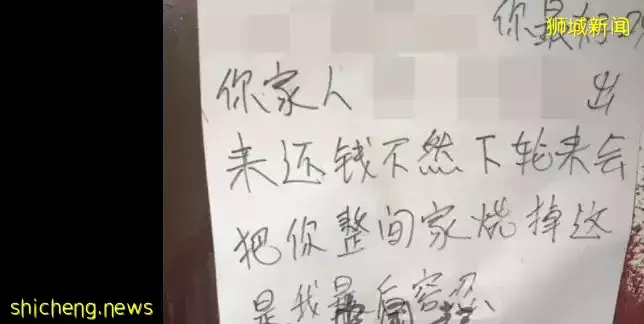 狮城新闻
你最好
你家人 出
来还钱不然下轮来会
把你整间家烧掉这
是我最后容忍
shicheng.news